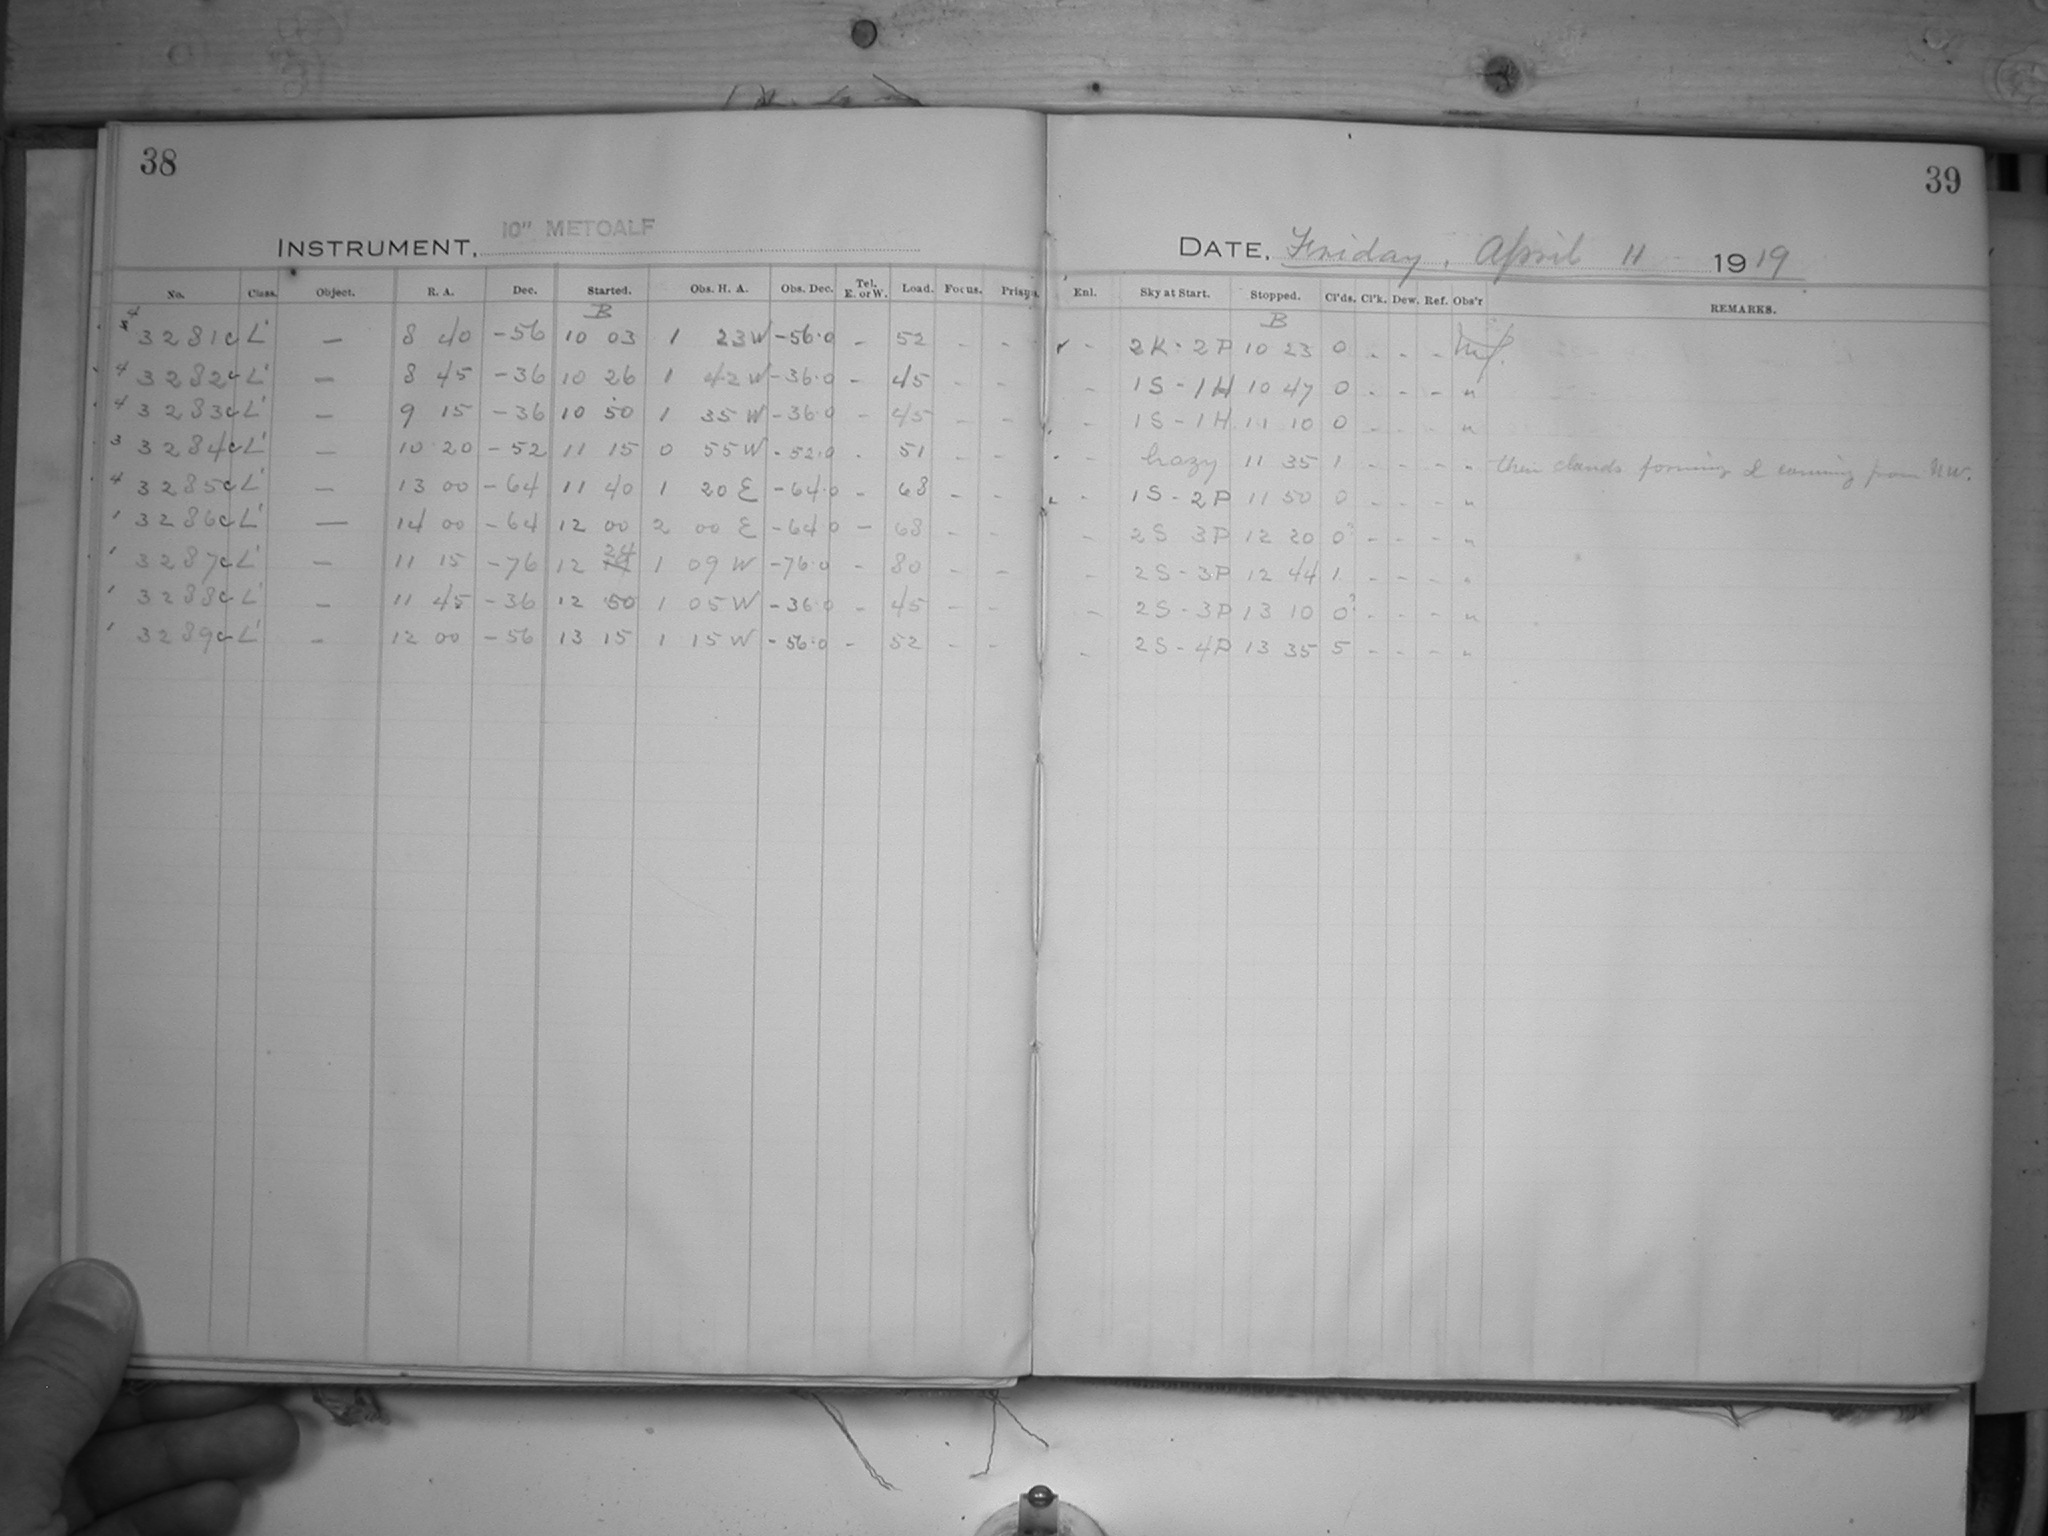 38
39
INSTRUMENT, 10" METCALF
DATE, Friday, April 11 1919
No. Class. Object. R. A. Dec. Started. Obs. H. A. Obs. Dec. Tel. E. or W. Load. Focus. Prism. Enl. Sky at Start. Stopped. Cl'ds. Cl'k. Dew. Ref. Obs'r REMARKS.
B B
4 3281c L' — 8 40 -56 10 03 1 23W -56.0 - 52 - - - 2K-2P 10 23 0 - - -
4 3282c L' — 8 45 -36 10 26 1 42W -36.0 - 45 - - - 1S-1H 10 47 0 - - - "
4 3283c L' — 9 15 -36 10 50 1 35W -36.0 - 45 - - - 1S-1H 11 10 0 - - - "
3 3284c L' — 10 20 -52 11 15 0 55W -52.0 - 51 - - - hazy 11 35 1 - - - " clouds forming & coming from NW.
4 3285c L' — 13 00 -64 11 40 1 20E -64.0 - 68 - - - 1S-2P 11 50 0 - - - "
1 3286c L' — 14 00 -64 12 00 2 00E -64.0 - 68 - - - 2S 3P 12 20 0? - - - "
1 3287c L' — 11 15 -76 12 24 1 09W -76.0 - 80 - - - 2S-3P 12 44 1 - - - "
1 3288c L' — 11 45 -36 12 50 1 05W -36.0 - 45 - - - 2S-3P 13 10 0? - - - "
1 3289c L' — 12 00 -56 13 15 1 15W -56.0 - 52 - - - 2S-4P 13 35 5 - - - "